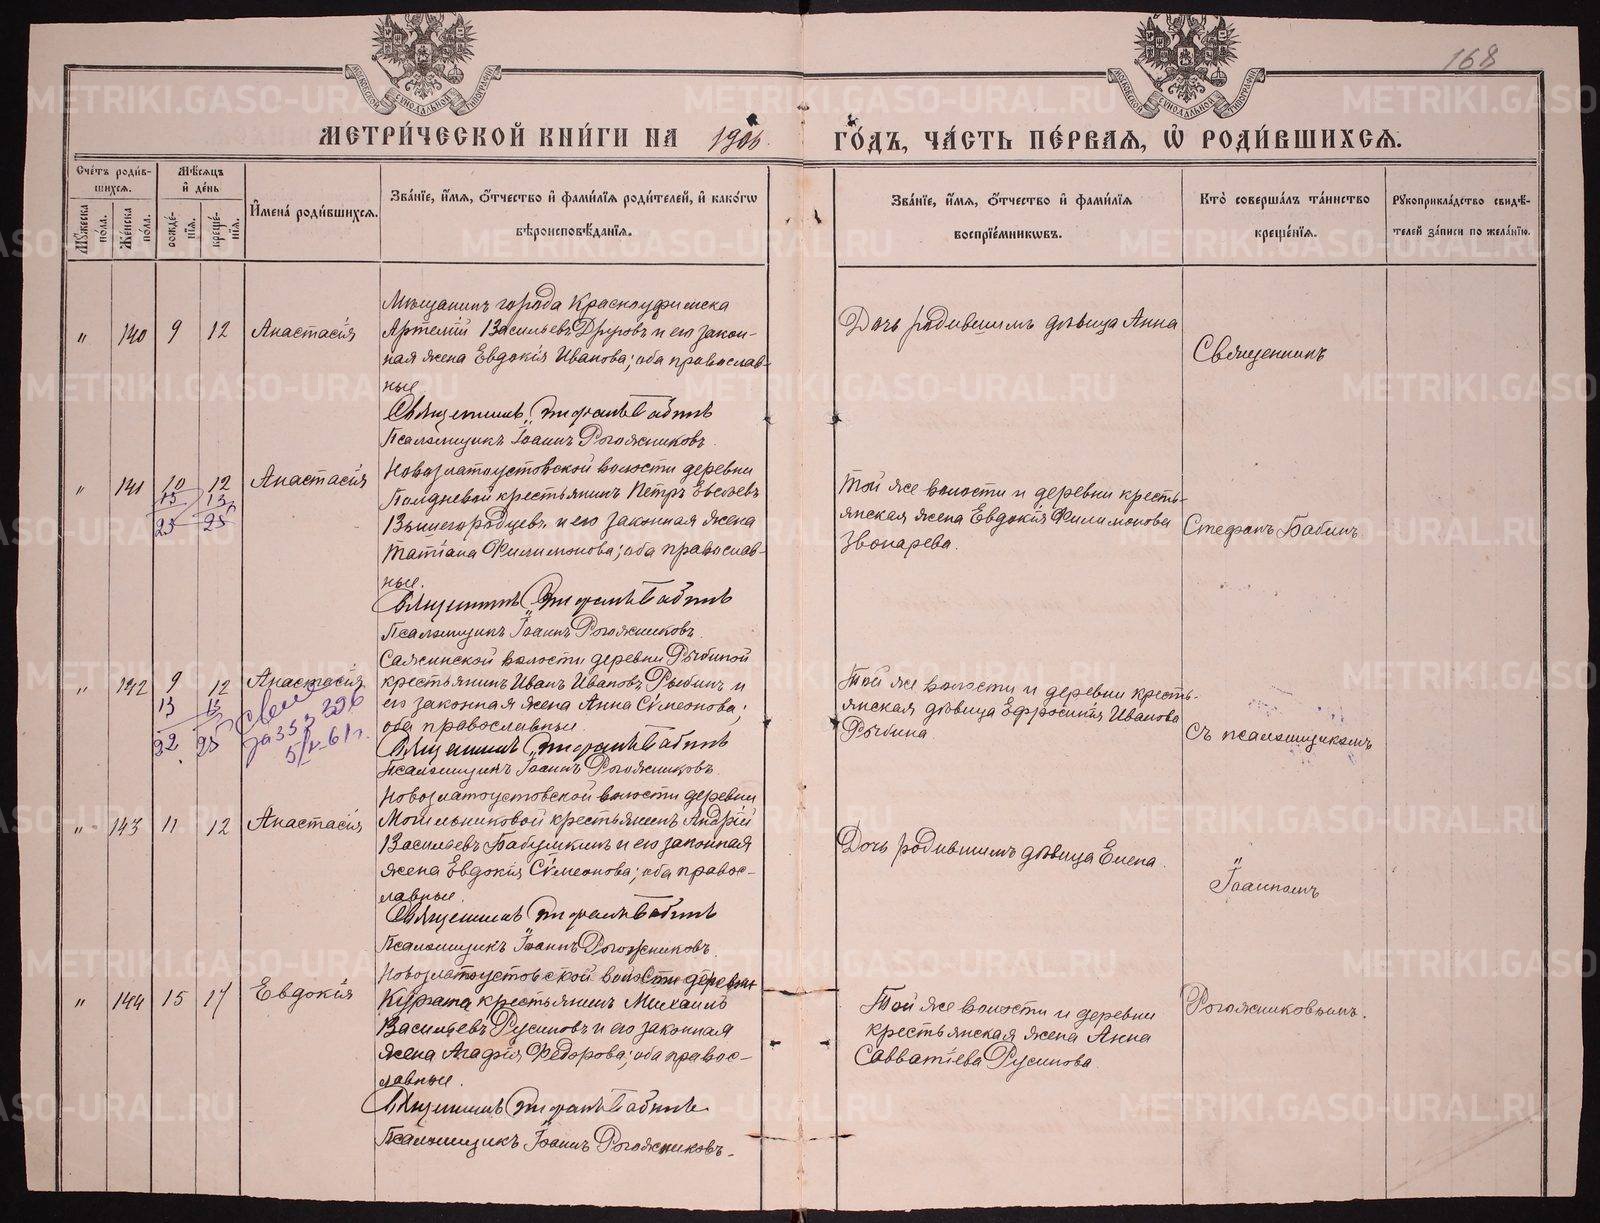 168
МОСКОВСКОЙ СѴНОДАЛЬНОЙ ТИПОГРАФІИ
МОСКОВСКОЙ СѴНОДАЛЬНОЙ ТИПОГРАФІИ
МЕТРИ́ЧЕСКОЙ КНИ́ГИ НА 1906 ГО́ДЪ, ЧА́СТЬ ПЕ́РВАЯ, Ѡ РОДИ́ВШИХСЯ.
Сче́тъ роди́в-
шихся.
Мѣ́сяцъ
и҆ де́нь
Мꙋ́жеска
пола.
Же́нска
пола.
рожде́-
нїя.
креще́-
нїя.
И҆мена̀ роди́вшихся.
Зва́нїе, и҆́мя, ѻ҆́тчество и҆ фамі́лїя роди́телей, и҆ како́гѡ
вѣроисповѣ́данїя.
Зва́нїе, и҆́мя, ѻ҆́тчество и҆ фамі́лїя
воспрїе́мникѡвъ.
Кто̀ соверша́лъ та́инство
креще́нїя.
Рꙋкоприкла́дство свидѣ́-
телей за́писи по жела́нїю.
" 140 9 12 Анастасія
Мѣщанинъ города Красноуфимска
Артемій Васильевъ Друговъ и его закон-
ная жена Евдокія Иванова; оба православ-
ные.
Священникъ Стефанъ Бабинъ
Псаломщикъ Іоаннъ Рогожниковъ.
Дочь родившимъ дѣвица Анна
Священникъ
" 141 10 12 Анастасія
13 13
23 25
Новозлатоустовской волости деревни
Полдневой крестьянинъ Петръ Евсѣевъ
Вышегородцевъ и его законная жена
Татіана Филимонова; оба православ-
ные.
Священникъ Стефанъ Бабинъ
Псаломщикъ Іоаннъ Рогожниковъ.
Той же волости и деревни кресть-
янская жена Евдокія Филимонова
Звонарева.
Стефанъ Бабинъ
" 142 9 12 Анастасія
13 13
22 25
за 353 326
5/V-61 г.
Сажинской волости деревни Рыбиной
крестьянинъ Иванъ Ивановъ Рыбинъ и
его законная жена Анна Сѵмеонова;
оба православные.
Священникъ Стефанъ Бабинъ
Псаломщикъ Іоаннъ Рогожниковъ.
Той же волости и деревни кресть-
янская дѣвица Ефросинія Иванова
Рыбина
съ псаломщикомъ
" 143 11 12 Анастасія
Новозлатоустовской волости деревни
Могильниковой крестьянинъ Андрій
Васильевъ Бабушкинъ и его законная
жена Евдокія Сѵмеонова; оба правос-
лавные.
Священникъ Стефанъ Бабинъ
Псаломщикъ Іоаннъ Рогожниковъ.
Дочь родившимъ дѣвица Елена.
Іоанномъ
" 144 15 17 Евдокія
Новозлатоустовской волости деревни
Курата крестьянинъ Михаилъ
Васильевъ Русиновъ и его законная
жена Агафія Ѳедорова; оба правос-
лавные.
Священникъ Стефанъ Бабинъ
Псаломщикъ Іоаннъ Рогожниковъ.
Той же волости и деревни
крестьянская жена Анна
Савватіева Русинова.
Рогожниковымъ.